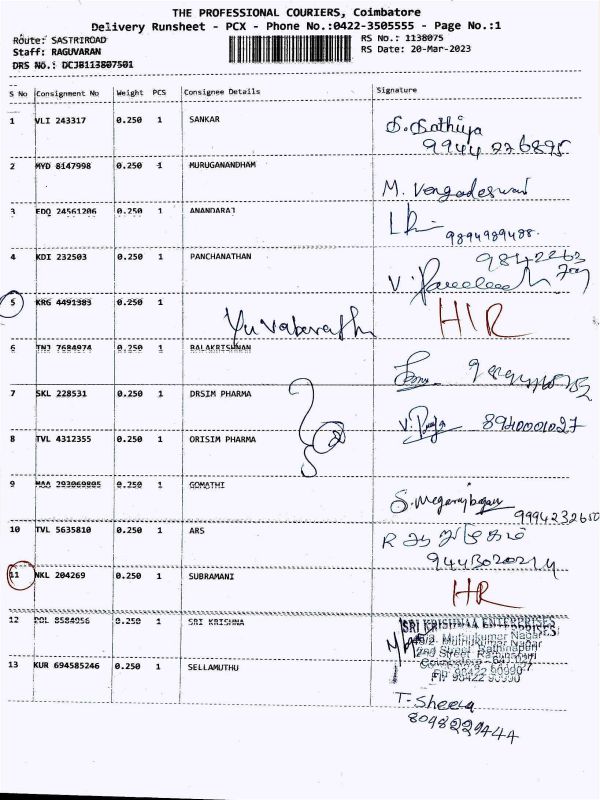 THE PROFESSIONAL COURIERS, Coimbatore
Delivery Runsheet - PCX - Phone No.:0422-3505555 - Page No.:1
Route: SASTRIROAD
Staff: RAGUVARAN
DRS No.: DCJB113807501
RS No.: 1138075
RS Date: 20-Mar-2023
S No Consignment No Weight PCS Consignee Details Signature
1 VLI 243317 0.250 1 SANKAR
S. Sathiya
9944 226895
2 MYD 8147998 0.250 1 MURUGANANDHAM
M. Vengadeswari
3 EDQ 24561206 0.250 1 ANANDARAJ
9894989488.
4 KDI 232503 0.250 1 PANCHANATHAN
5 KRG 4491383 0.250 1
Yuvabarathi
HIR
6 TNJ 7684974 0.250 1 BALAKRISHNAN
7 SKL 228531 0.250 1 DRSIM PHARMA
8940001027
8 TVL 4312355 0.250 1 ORISIM PHARMA
9 MAA 293069805 0.250 1 GOMATHI
9994232650
10 TVL 5635810 0.250 1 ARS
11 NKL 204269 0.250 1 SUBRAMANI
HR
12 0.250 1 SRI KRISHNA
SRI KRISHNAA ENTERPRISES
Muthukumar Nagar
2nd Street
98422 90990
13 KUR 694585246 0.250 1 SELLAMUTHU
T. Sheela
8098229444